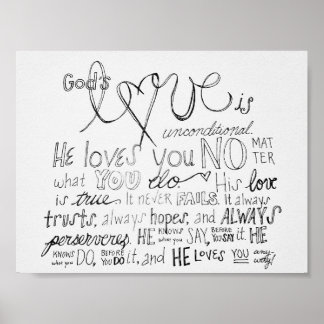 God's love is
unconditional.
He loves you NO MATTER
what YOU do. His love
is true. It NEVER FAILS. It always
trusts, always hopes, and ALWAYS
perserveres. HE KNOWS what you SAY, BEFORE YOU SAY it. HE
KNOWS what you DO, BEFORE YOU DO it, and HE LOVES YOU any way!